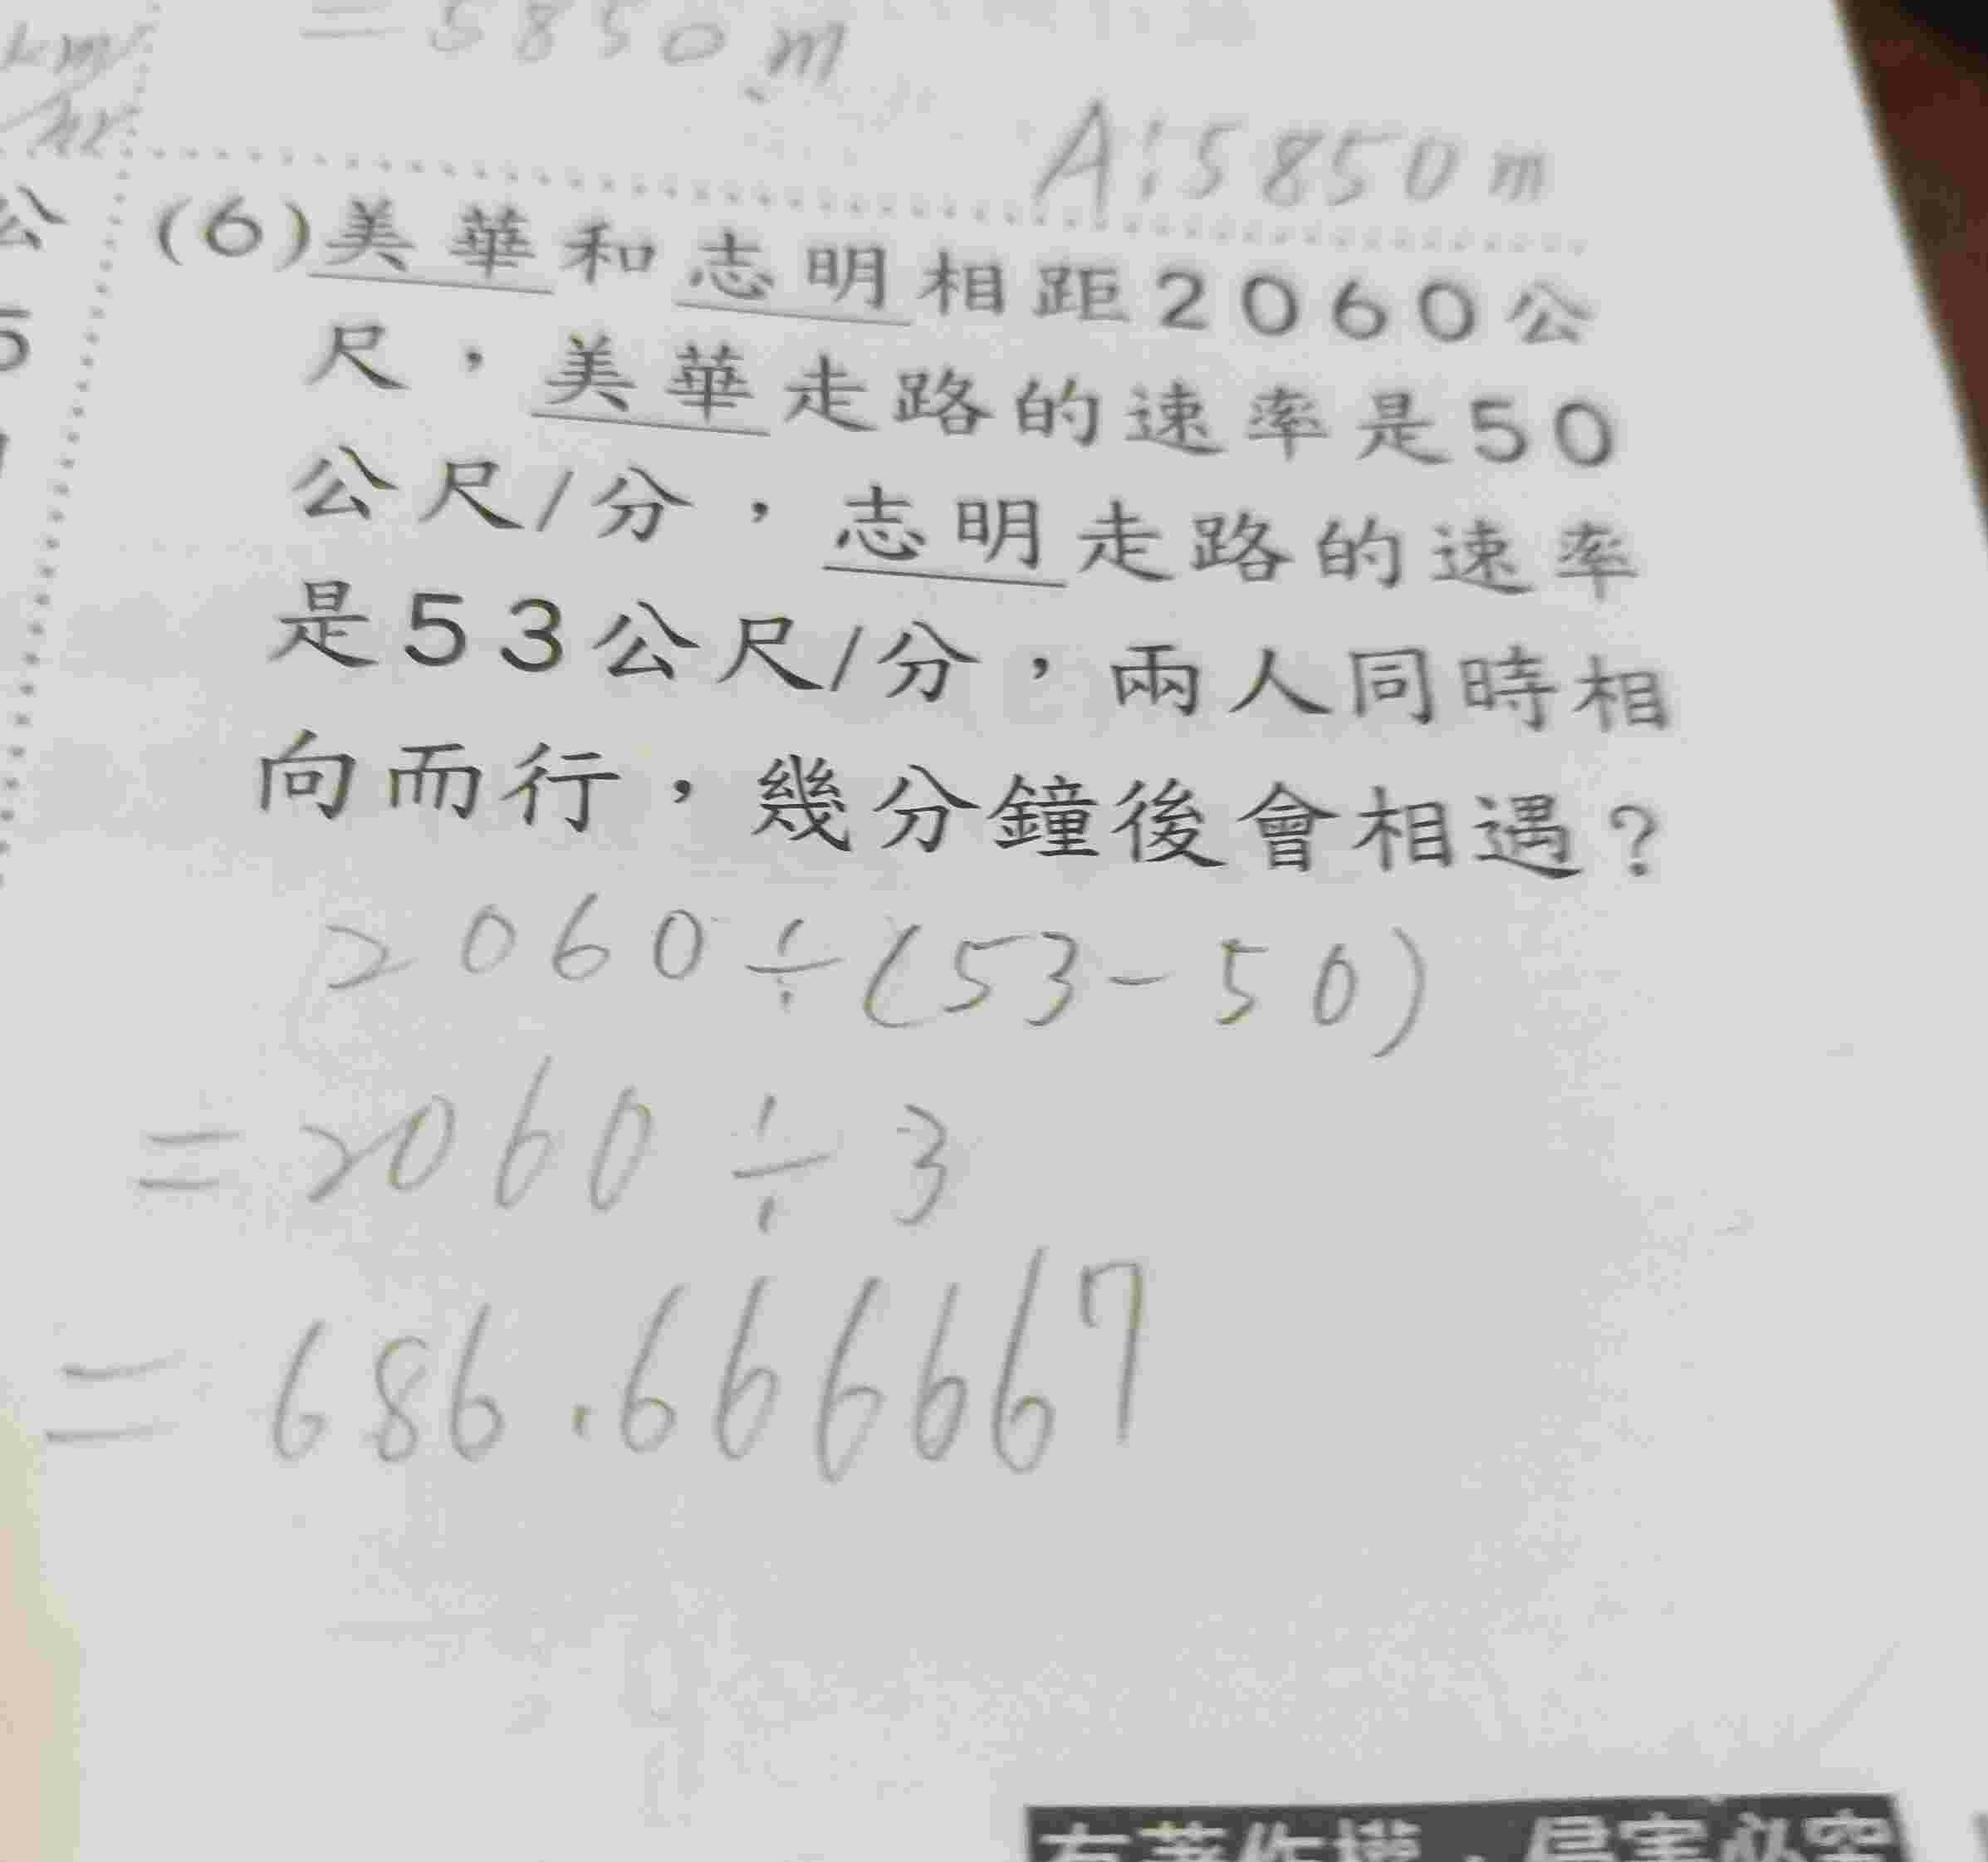 = 5850 m
km/hr
A:5850m
公
(6)美華和志明相距2060公
尺，美華走路的速率是50
5
公尺/分，志明走路的速率
是53公尺/分，兩人同時相
向而行，幾分鐘後會相遇？
2060÷(53-50)
=2060÷3
=686.666667
有著作權．侵害必究